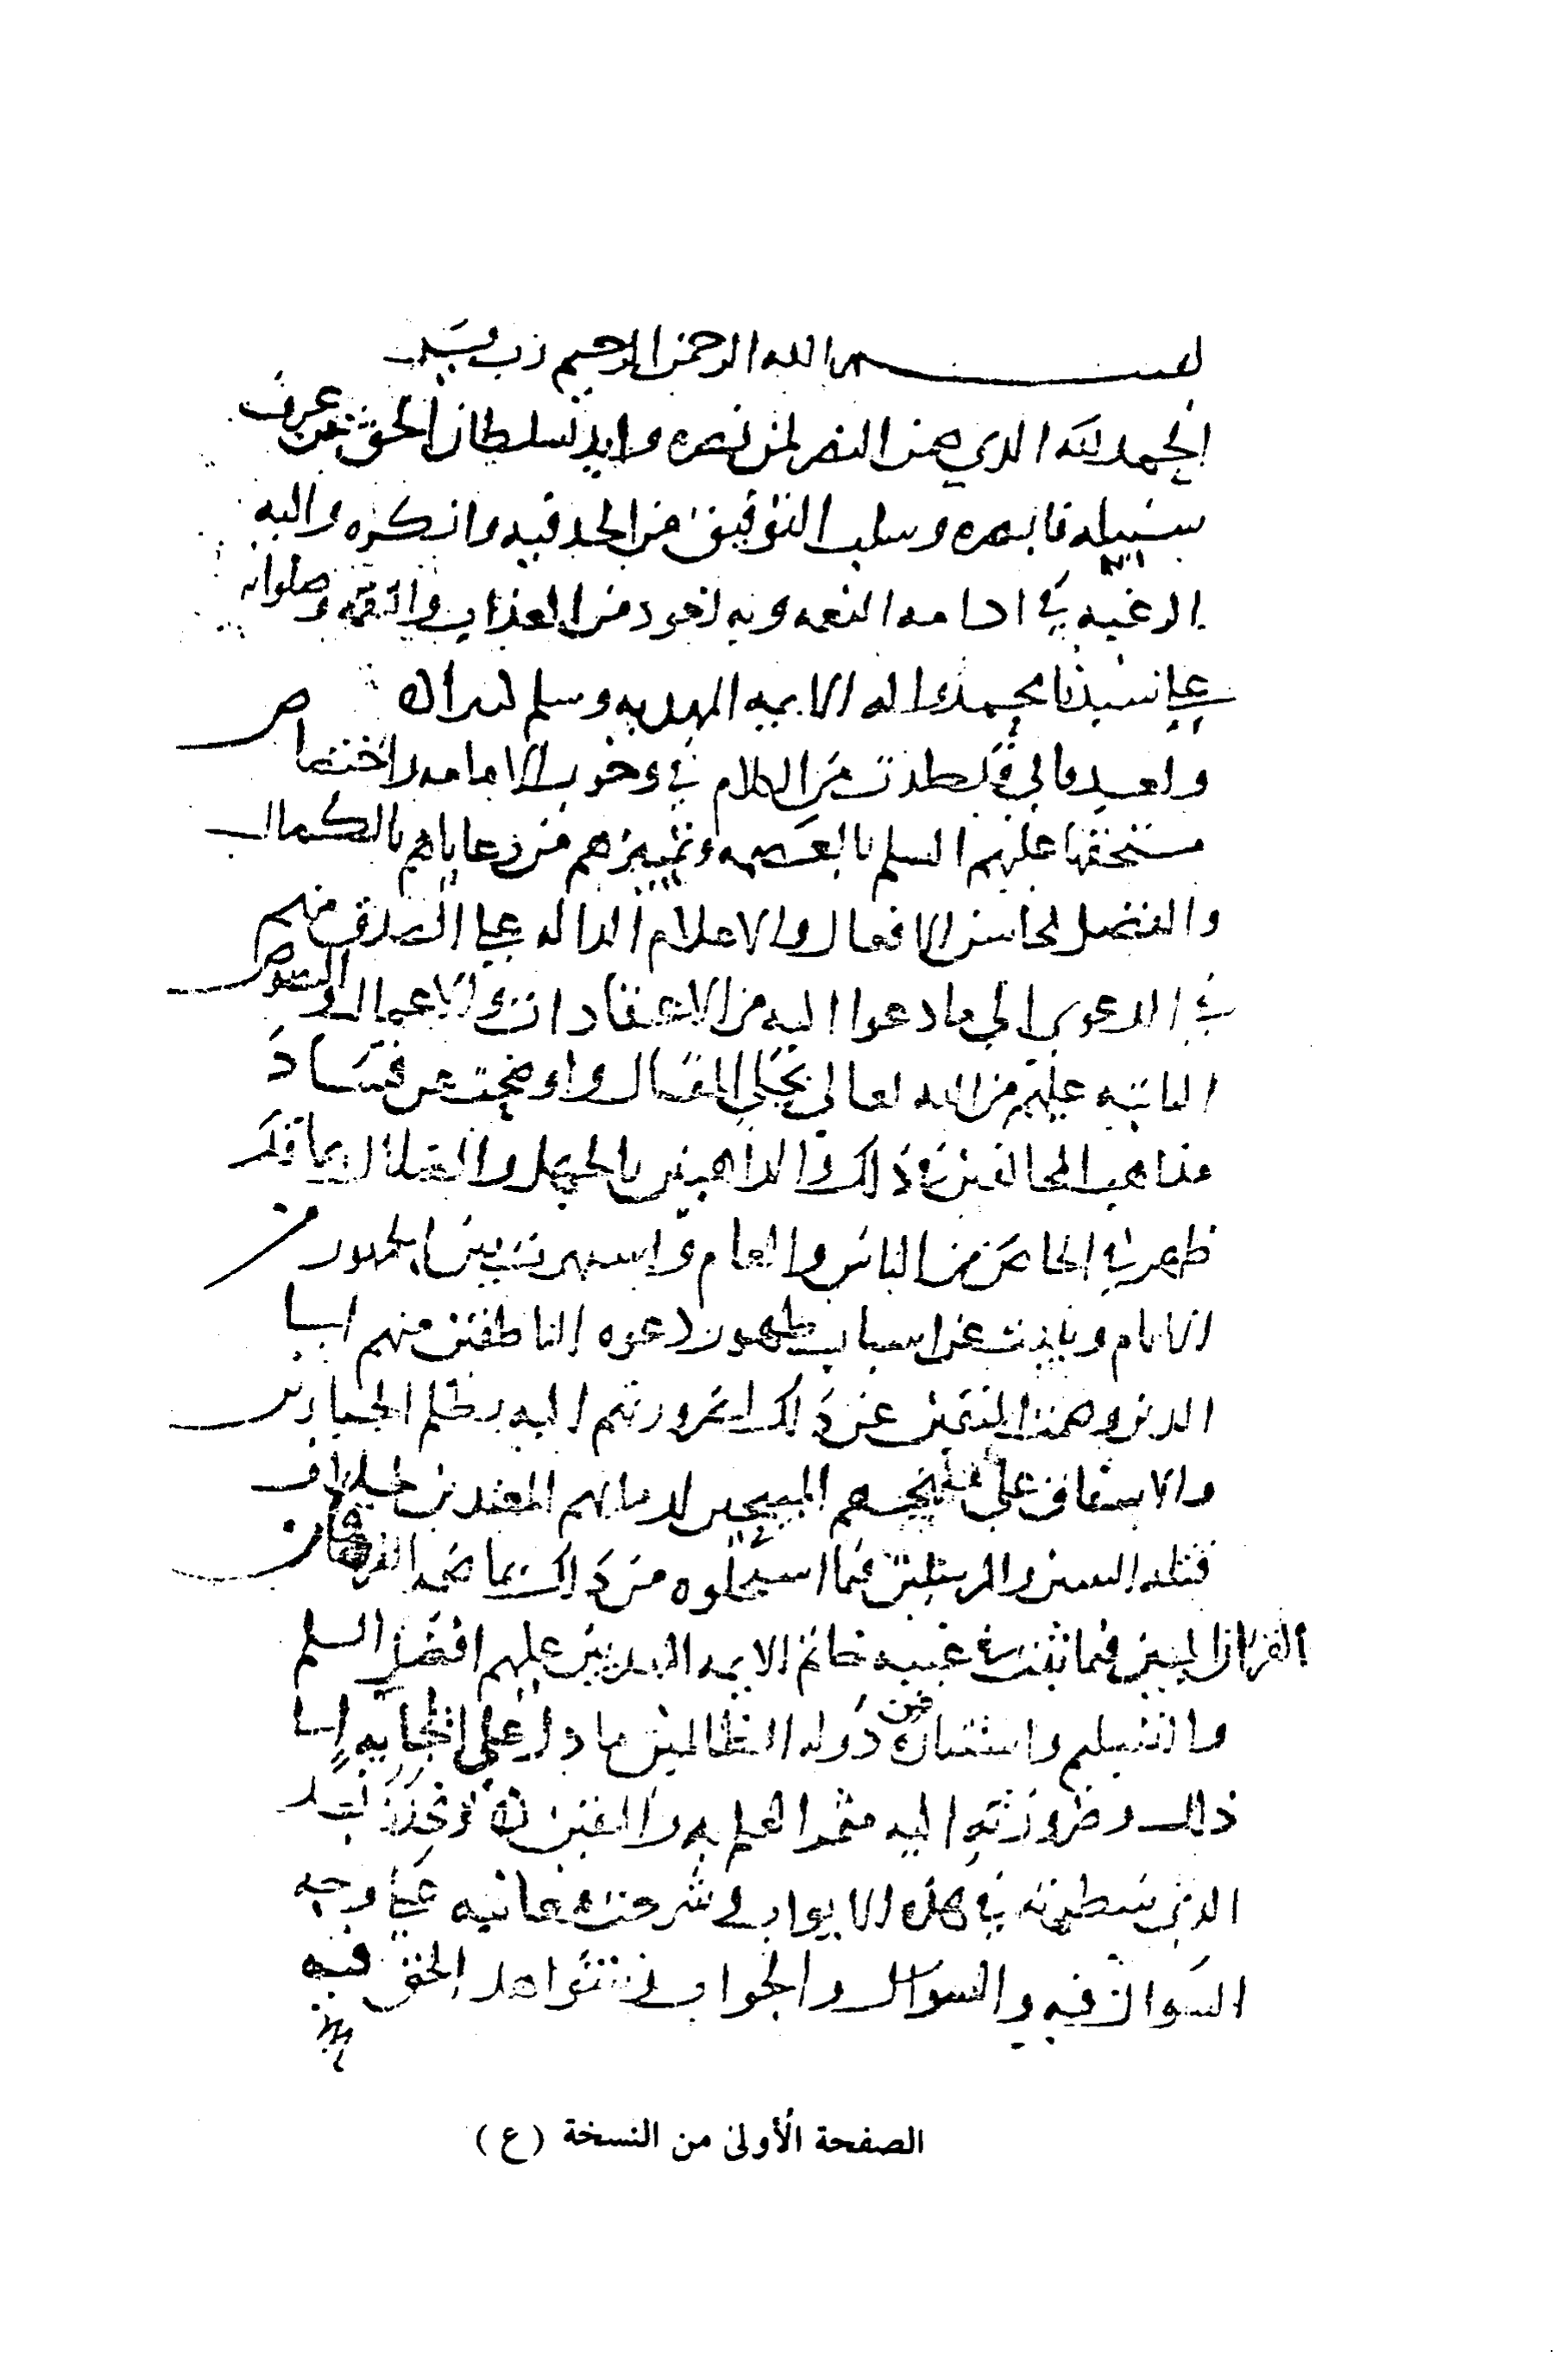 بسم الله الرحمن الرحيم رب يسر
الحمد لله الذي ضمن النصر لمن نصره وايد بسلطان الحق من عرف
سبيله فابصره وسلب التوفيق من الحد فيه وانكره واليه
الرغبه في ادامه النعمه وبه نعوذ من العذاب والنقمه وصلواته
علي سيدنا محمد واله الايمه المهديه وسلم كثيرا
وبعد فاني قد سطرت من الكلام في وجوب الامامه واختصاص
مستحقها عليهم السلم بالعصمه وتمييزهم من رعاياهم بالكمال
والفضل لمحاسن الافعال والاعلام الداله علي الصدق منهم
في الدعوي الي ما دعوا اليه من الاعتقادات والاعمال والنصوص
الثابته عليهم من الله تعالي بجلي المقال واوضحت عن فساد
مذاهب المخالفين في ذلك والذاهبين بالجهل والضلال بما قد
ظهر في الخاص من الناس والعام واشتهر بين الجمهور من
الانام وبينت عن اسباب ظهور دعوه الناطقين منهم الي
الدين وصمت المتقين عن ذلك لضرورتهم اليه بظلم الجبارين
والاشفاق علي مهجهم المبيحين لدمايهم المعتدين بخلاف
قتله النبيين والمرسلين فيما استحلوه من ذلك بما ضمنه الفرقان
القران المبين فيما ثبت في غيبه خاتم الايمه المهديين عليهم افضل السلم
والتسليم واستتاره من دوله الظالمين ما دل علي ايجابه الي
ذلك وضرورته اليه مثمر العلم به واليقين وتجدد بعد
الذي سطرته في هذه الابواب شرحت معانيه علي وجه
السوال فيه والسوال والجواب وشواهد الحق فيه
الصفحة الأولى من النسخة (ع)